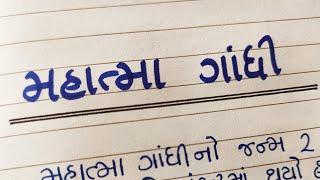 મહાત્મા ગાંધી
મહાત્મા ગાંધીનો જન્મ 2
થયો